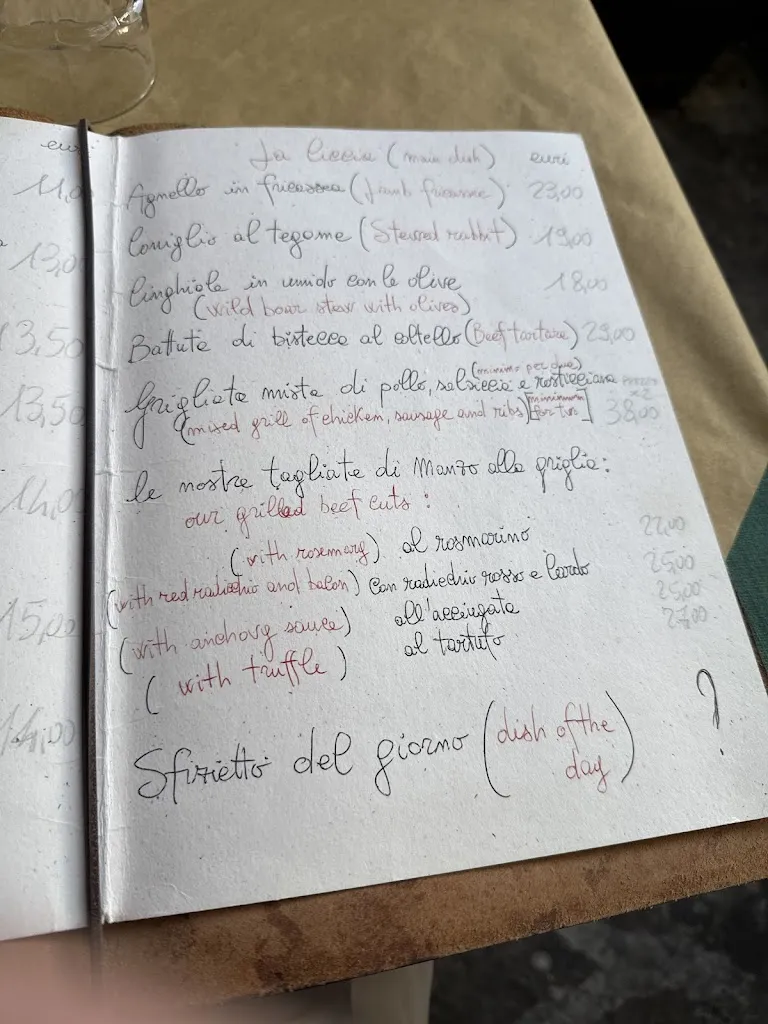 eur
11,0
13,0
13,50
13,50
14,00
15,00
14,00
La Ciccia (main dish) euri
Agnello in fricassea (lamb fricassee) 23,00
Coniglio al tegame (Stewed rabbit) 19,00
Cinghiale in umido con le olive 18,00
(wild boar stew with olives)
Battuta di bistecca al coltello (Beef tartare) 23,00
(minimo per due)
Grigliata mista di pollo, salsiccia e rosticciana x2
(mixed grill of chicken, sausage and ribs) [minimum for two] 38,00
le nostre tagliate di Manzo alla griglia:
our grilled beef cuts:
(with rosemary) al rosmarino 22,00
(with red radicchio and bacon) con radicchio rosso e lardo 25,00
(with anchovy sauce) all'acciugata 25,00
(with truffle) al tartufo 27,00
Sfizietto del giorno (dish of the day) ?